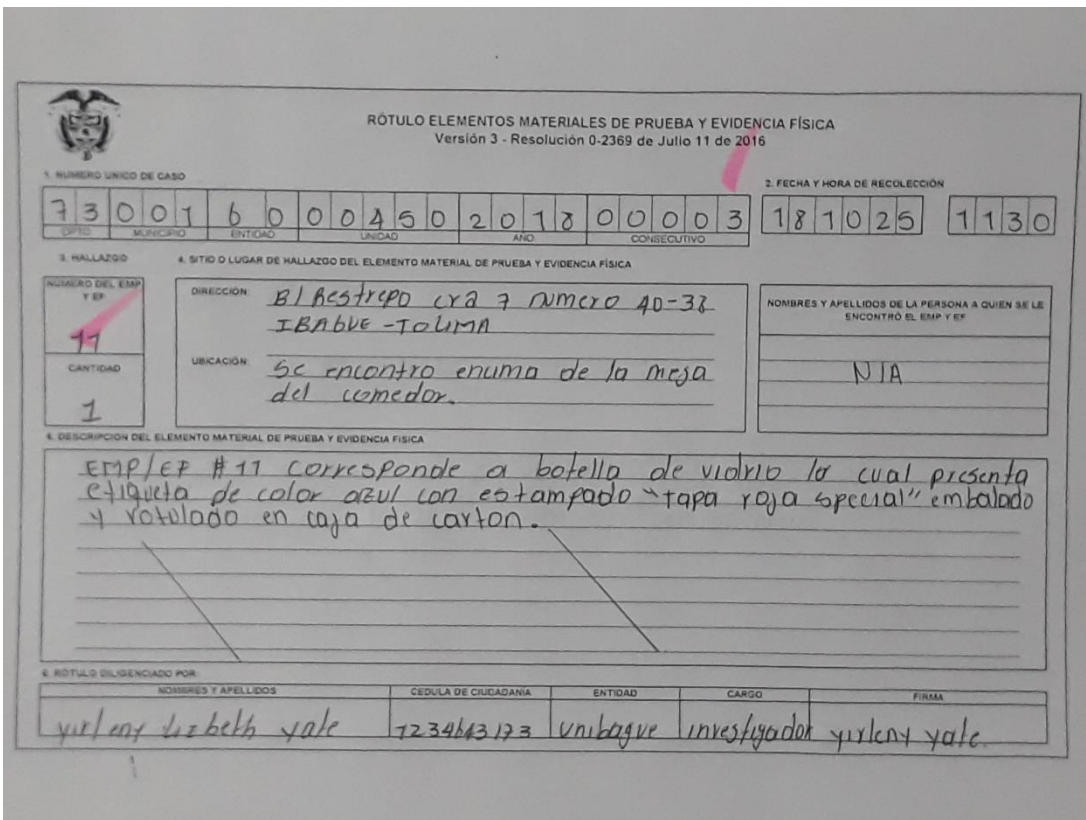 RÓTULO ELEMENTOS MATERIALES DE PRUEBA Y EVIDENCIA FÍSICA
Versión 3 - Resolución 0-2369 de Julio 11 de 2016
1. NUMERO UNICO DE CASO
2. FECHA Y HORA DE RECOLECCIÓN
73 001 60 00450 2018 00003 181025 1130
DPTO MUNICIPIO ENTIDAD UNIDAD AÑO CONSECUTIVO
3. HALLAZGO
4. SITIO O LUGAR DE HALLAZGO DEL ELEMENTO MATERIAL DE PRUEBA Y EVIDENCIA FÍSICA
NUMERO DEL EMP Y EF
11
CANTIDAD
1
DIRECCIÓN: B/ Restrepo cra 7 numero 40-38
IBAGUE-TOLIMA
UBICACIÓN: Se encontro enuma de la mesa
del comedor.
NOMBRES Y APELLIDOS DE LA PERSONA A QUIEN SE LE
ENCONTRÓ EL EMP Y EF
N/A
5. DESCRIPCIÓN DEL ELEMENTO MATERIAL DE PRUEBA Y EVIDENCIA FISICA
EMP/EF #11 corresponde a botella de vidrio la cual presenta
etiqueta de color azul con estampado "tapa roja special" embalado
y rotulado en caja de carton.
6. RÓTULO DILIGENCIADO POR:
NOMBRES Y APELLIDOS CEDULA DE CIUDADANÍA ENTIDAD CARGO FIRMA
yirleny lizbeth yate 1234643173 Unibague investigador yirleny yate.